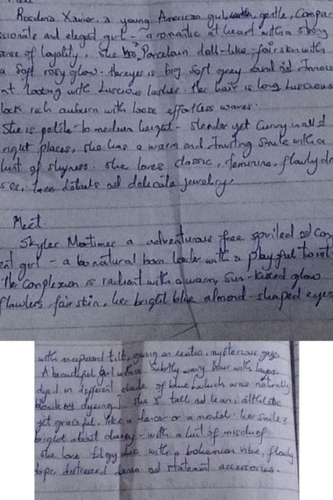 Roselina Xavier, a young American girl gentle, Compa
ssionate and elegent girl - a romantic at heart with a strong
sense of loyality. she has Porcelain doll-like fair skin with
a Soft rosy glow. her eyes is big Soft grey round
looking with Luscious lashes. her hair is long Luscious
lock rich auburn with loose effortless waves.
She is petite to medium height - slender yet Curvy in all
right places, she has a warm and smile with a
hint of shyness. she loves classic, feminine, flowly
lace details and delicate jewelry.
Meet
Skyler Mortimer a adventurous free spirited
girl - a natural born leader with a playful twist
The complexion is radiant with a warm, Sun-kissed glow
flawless, fair skin, her bright blue almond-shaped eyes
with an upward tilt, giving an exotic, mysterious gaze.
A beautiful wavy hair with
dyed in different shade of blue which was naturally
dyeing. She is tall and lean, athletic
yet graceful, like a dancer or a model. her smile
bright with a hint of mischief
She love with a bohemian vibe, flowly
tops, distressed denim and statement accessories.